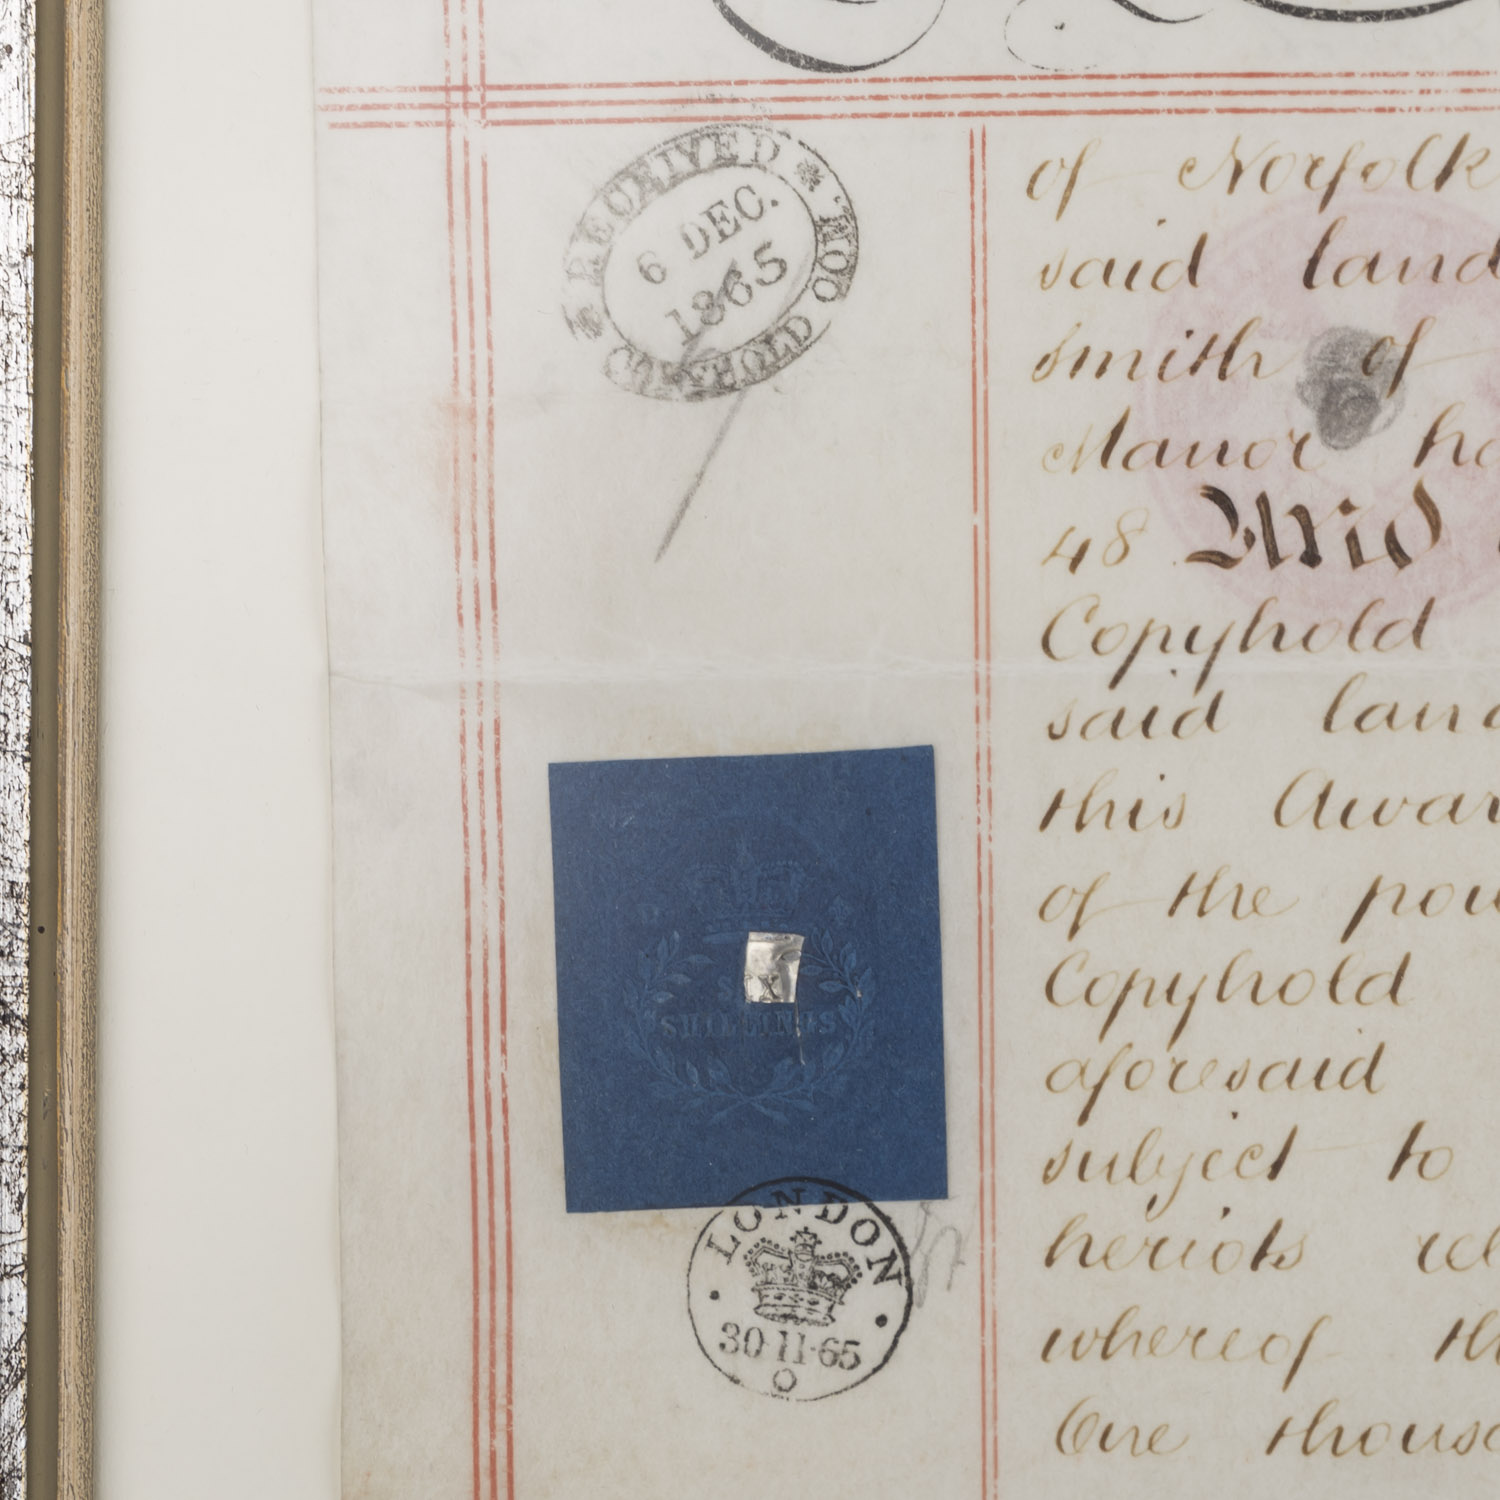 RECEIVED
6 DEC.
1865
COPYHOLD COM.
of Norfolk
said land
smith of
Manor
48 And
Copyhold
said
this
of the
Copyhold
aforesaid
subject to
heriots
whereof
One
SIX
SHILLINGS
LONDON
30·11·65
O